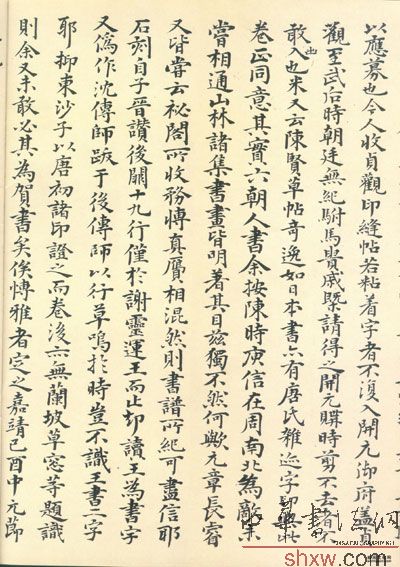 以應募也今人收貞觀印縫帖若粘着字者不復入開元御府盖貞
觀至武后時朝廷無紀駙馬貴戚槩請得之開元購時剪不去者不
敢入也米又云陳賢草帖奇逸如日本書亦有唐氏雜迹字印與此
卷正同意其實六朝人書余按陳時庾信在周南北為敵未
嘗相通山林諸集書畫皆明著其目茲獨不然何歟元章長睿
又皆嘗云祕閣所收務愽真贋相混然則書譜所紀可盡信耶
石刻自子晉讚後闕十九行僅於謝靈運王而止却讀王為書字
又偽作沈傳師跋于後傳師以行草鳴於時豈不識王書二字
耶抑東沙子以唐初諸印證之而卷後亦無蘭坡草窓等題識
則余又未敢必其為賀書矣俟愽雅者定之嘉靖己酉中元節
shxw.com